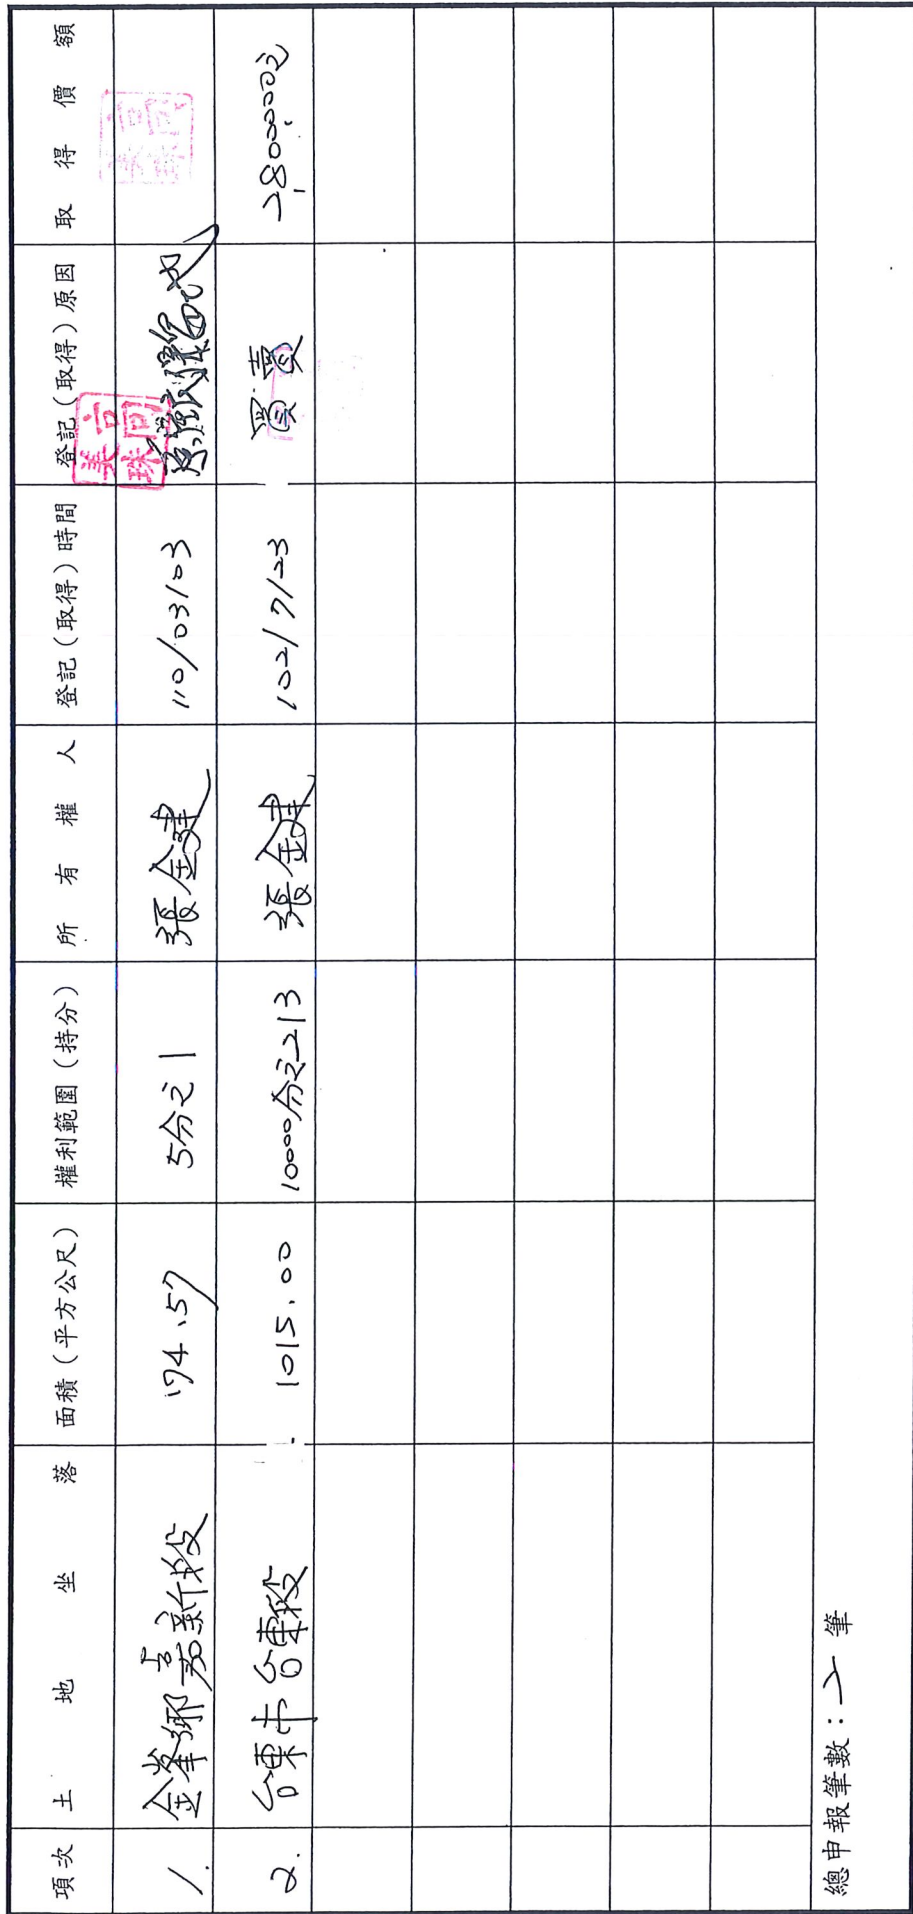 項次 土地坐落 面積（平方公尺） 權利範圍（持分） 所有權人 登記（取得）時間 登記（取得）原因 取得價額
1. 金峯鄉嘉新段 174.57 5分之1 張金建 110/03/03
2. 台東市台東段 1015.00 10000分之213 張金建 102/7/23 買賣 2,800,000元
總申報筆數：2筆